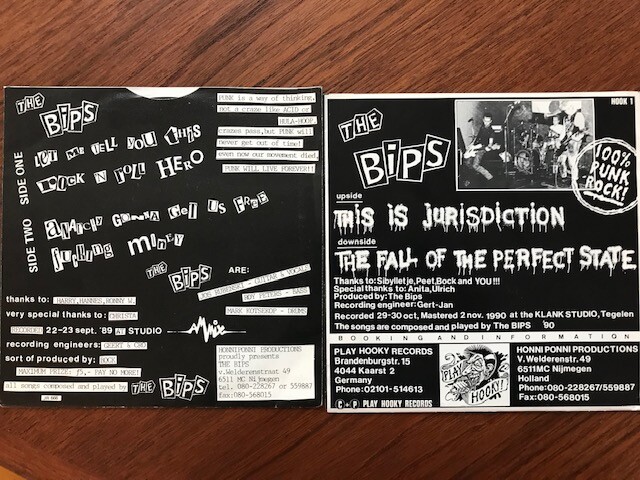 THE BiPS
SIDE ONE
LET ME TELL YOU THIS
ROCK N ROLL HERO
SIDE TWO
ANARCHY GONNA GET US FREE
FUCKING MONEY
PUNK is a way of thinking,
not a craze like ACID or
HULA-HOOP.
crazes pass, but PUNK will
never get out of time!
even now our movement died,
PUNK WILL LIVE FOREVER!!
THE BiPS ARE:
JOE RUBENSKI - GUITAR & VOCALS
ROY PETERS - BASS
MARK KOTSEKOP - DRUMS
thanks to: HARRY,HANNES,RONNY W.
very special thanks to: CHRISTA
RECORDED 22-23 sept. '89 AT STUDIO
recording engineers: GEERT &
sort of produced by:
MAXIMUM PRIZE: ƒ5,- PAY NO MORE!
all songs composed and played by THE BiPS
HONNIPONNI PRODUCTIONS
proudly presents
THE BIPS
v.Welderenstraat 49
6511 MC Nijmegen
tel. 080-228267 or 559887
fax:080-568015
HOOK 1
THE BiPS
100% PUNK ROCK!
upside
THIS IS JURISDICTION
downside
THE FALL OF THE PERFECT STATE
Thanks to:Sibylletje,Peet,Bock and YOU !!!
Special thanks to: Anita,Ulrich
Produced by:The Bips
Recording engineer:Gert-Jan
Recorded 29-30 oct, Mastered 2 nov. 1990 at the KLANK STUDIO, Tegelen
The songs are composed and played by The BIPS '90
BOOKING AND INFORMATION
PLAY HOOKY RECORDS
Brandenburgstr. 15
4044 Kaarst 2
Germany
Phone:02101-514613
C+P PLAY HOOKY RECORDS
PLAY HOOKY!
HONNI PONNI PRODUCTIONS
V.Welderenstr. 49
6511MC Nijmegen
Holland
Phone:080-228267/559887
Fax:080-568015